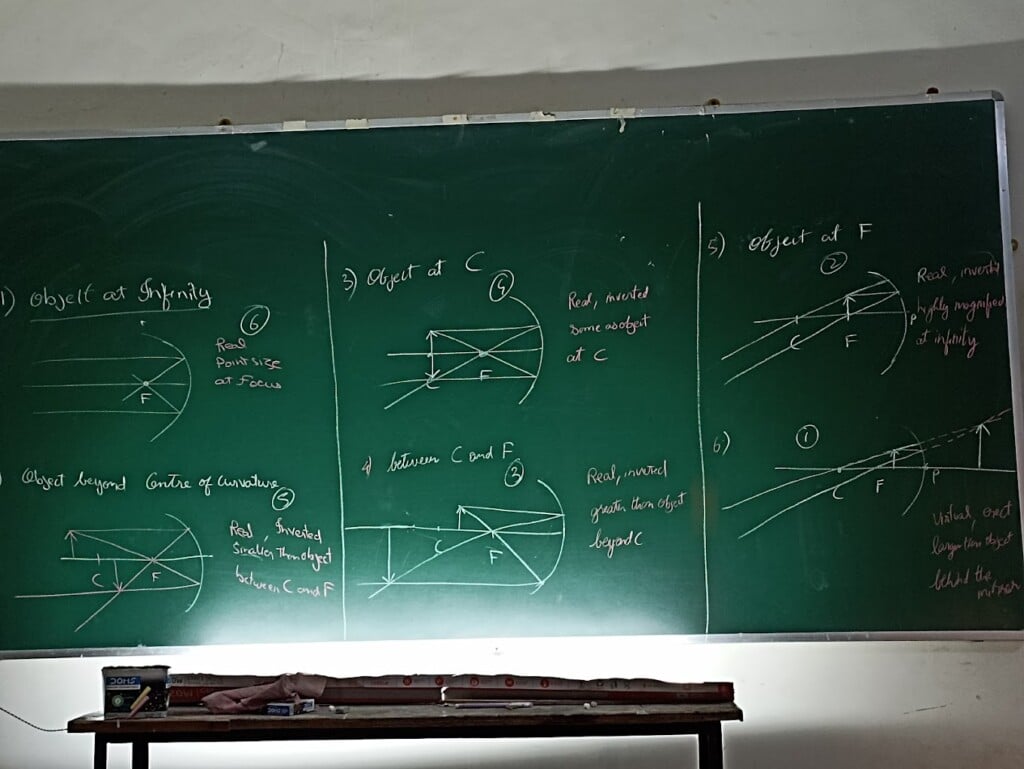 1) Object at Infinity
6
Real
Point size
at Focus
F
Object beyond Centre of curvature
5
Real, Inverted
Smaller than object
between C and F
C
F
3) Object at C
4
Real, inverted
same as object
at C
C
F
4) between C and F
3
Real, inverted
greater than object
beyond C
C
F
5) Object at F
2
Real, inverted
highly magnified
at infinity
C
F
P
6)
1
C
F
P
Virtual, erect
larger than object
behind the
mirror
DOMS